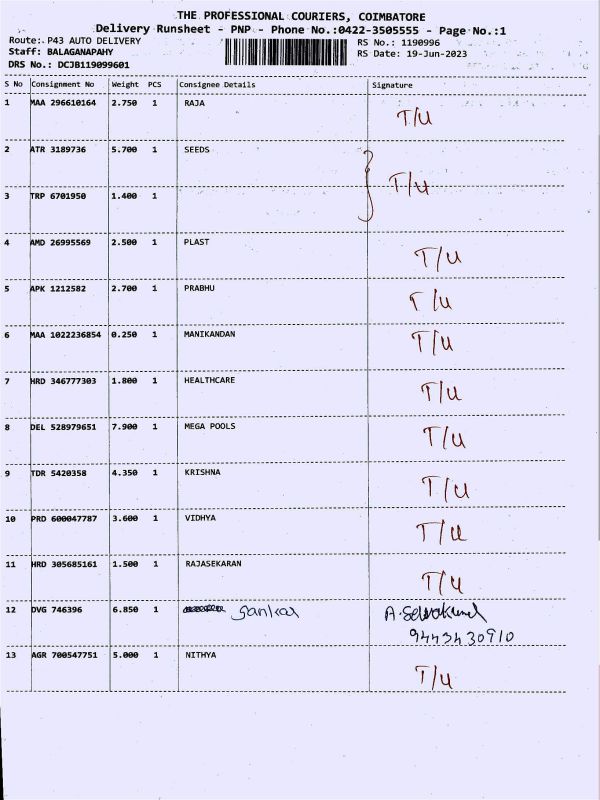 THE PROFESSIONAL COURIERS, COIMBATORE
Delivery Runsheet - PNP - Phone No.:0422-3505555 - Page No.:1
Route: P43 AUTO DELIVERY RS No.: 1190996
Staff: BALAGANAPAHY RS Date: 19-Jun-2023
DRS No.: DCJB119099601
S No Consignment No Weight PCS Consignee Details Signature
1 MAA 296610164 2.750 1 RAJA T/U
2 ATR 3189736 5.700 1 SEEDS
T/U
3 TRP 6701950 1.400 1
4 AMD 26995569 2.500 1 PLAST T/U
5 APK 1212582 2.700 1 PRABHU T/U
6 MAA 1022236854 0.250 1 MANIKANDAN T/U
7 HRD 346777303 1.800 1 HEALTHCARE T/U
8 DEL 528979651 7.900 1 MEGA POOLS T/U
9 TDR 5420358 4.350 1 KRISHNA T/U
10 PRD 600047787 3.600 1 VIDHYA T/U
11 HRD 305685161 1.500 1 RAJASEKARAN T/U
12 DVG 746396 6.850 1 Sankar
9443430910
13 AGR 700547751 5.000 1 NITHYA T/U